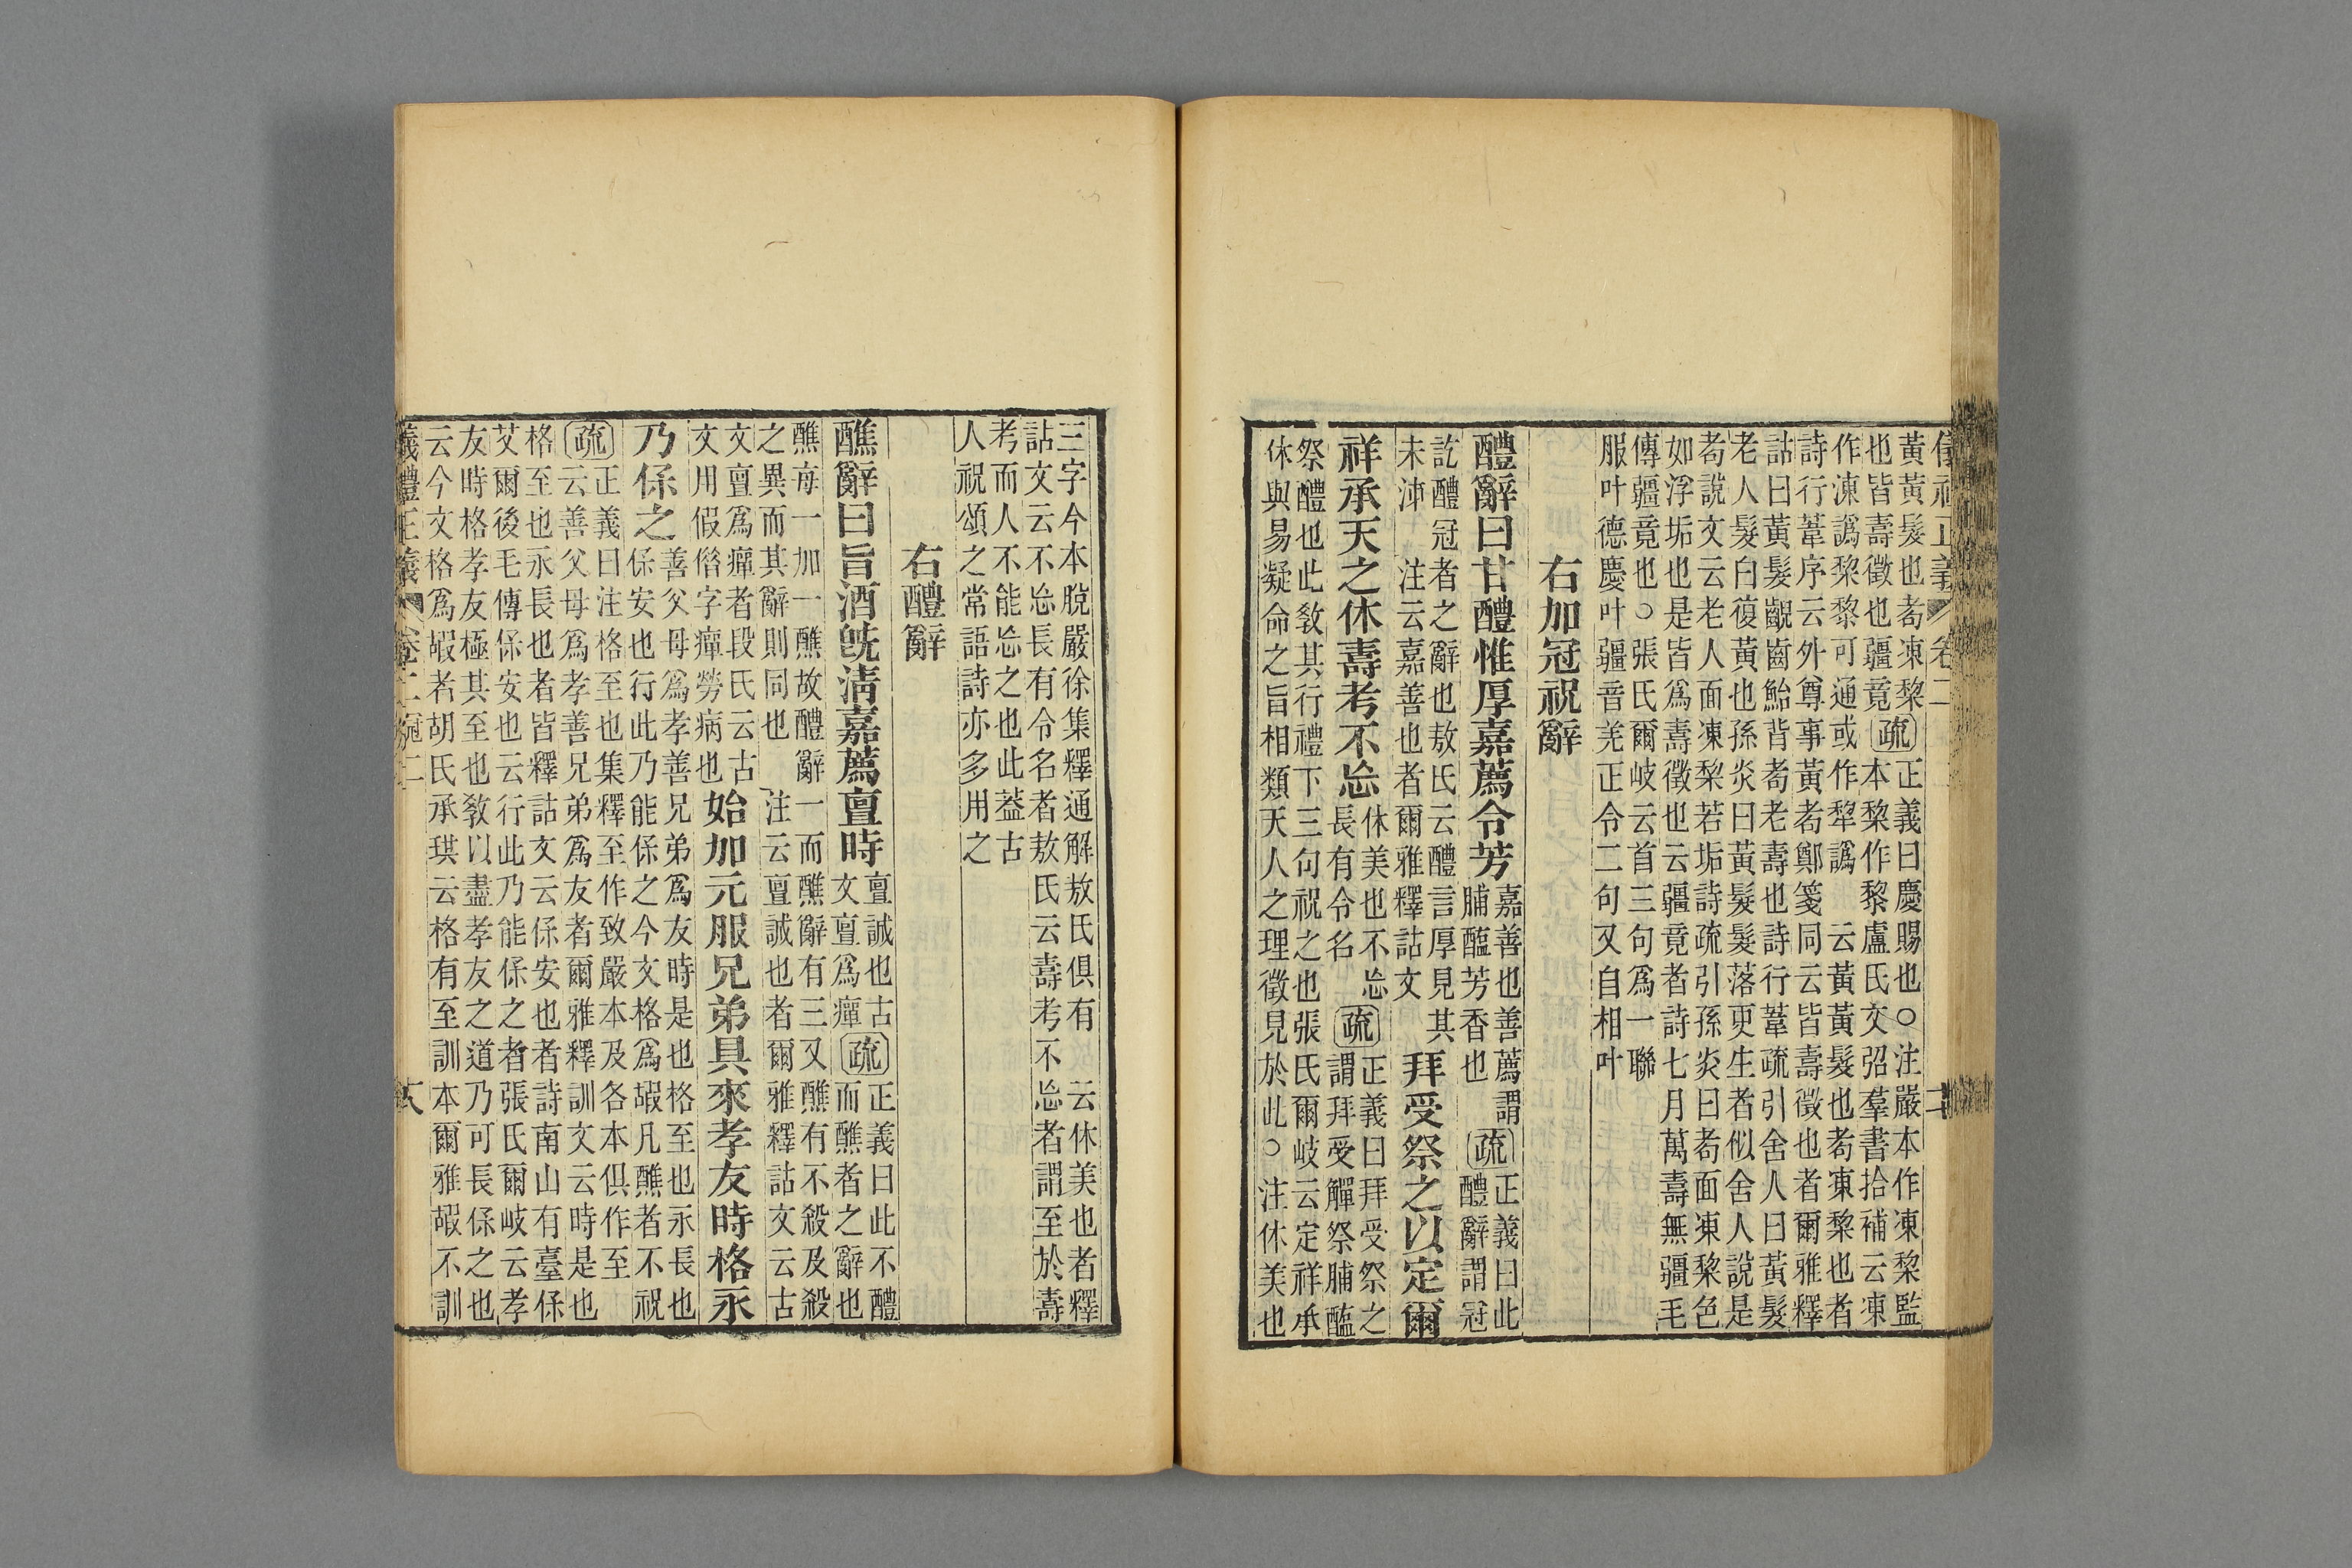 儀禮正義 卷二
黃黃髮也耇凍黎疏正義曰慶賜也○注嚴本作凍黎監
也皆壽徵也疆竟 本黎作黎盧氏文弨羣書拾補云凍
作凍譌黎黎可通或作犂譌 云黃黃髮也耇凍黎也者
詩行葦序云外尊事黃耇鄭箋同云皆壽徵也者爾雅釋
詁曰黃髮齯齒鮐背耇老壽也詩行葦疏引舍人曰黃髮
老人髮白復黃也孫炎曰黃髮髮落更生者似舍人說是
耇說文云老人面凍棃若垢詩疏引孫炎曰耇面凍黎色
如浮垢也是皆爲壽徵也云疆竟者詩七月萬壽無疆毛
傳疆竟也○張氏爾岐云首三句爲一聯
服叶德慶叶疆音羌正令二句又自相叶
右加冠祝辭
醴辭曰甘醴惟厚嘉薦令芳嘉善也善薦謂脯醢芳香也疏正義曰此醴辭謂冠
訖醴冠者之辭也敖氏云醴言厚見其
未沛 注云嘉善也者爾雅釋詁文
拜受祭之以定爾
祥承天之休壽考不忘休美也不忘長有令名疏正義曰拜受祭之謂拜受觶祭脯醢
祭醴也此敎其行禮下三句祝之也張氏爾岐云定祥承
休與易凝命之旨相類天人之理徵見於此○注休美也
三字今本脫嚴徐集釋通解敖氏俱有 云休美也者釋
詁文云不忘長有令名者敖氏云壽考不忘者謂至於壽
考而人不能忘之也此葢古
人祝頌之常語詩亦多用之
右醴辭
醮辭曰旨酒旣淸嘉薦亶時亶誠也古文亶爲癉疏正義曰此不醴而醮者之辭也
醮每一加一醮故醴辭一而醮辭有三又醮有不殺及殺
之異而其辭則同也 注云亶誠也者爾雅釋詁文云古
文亶爲癉者段氏云古
文用假俗字癉勞病也
始加元服兄弟具來孝友時格永
乃保之善父母爲孝善兄弟爲友時是也格至也永長也保安也行此乃能保之今文格爲嘏凡醮者不祝
疏正義曰注格至也集釋至作致嚴本及各本俱作至
云善父母爲孝善兄弟爲友者爾雅釋訓文云時是也
格至也永長也者皆釋詁文云保安也者詩南山有臺保
艾爾後毛傳保安也云行此乃能保之者張氏爾岐云孝
友時格孝友極其至也敎以盡孝友之道乃可長保之也
云今文格爲嘏者胡氏承珙云格有至訓本爾雅嘏不訓
儀禮正義 卷二冠二